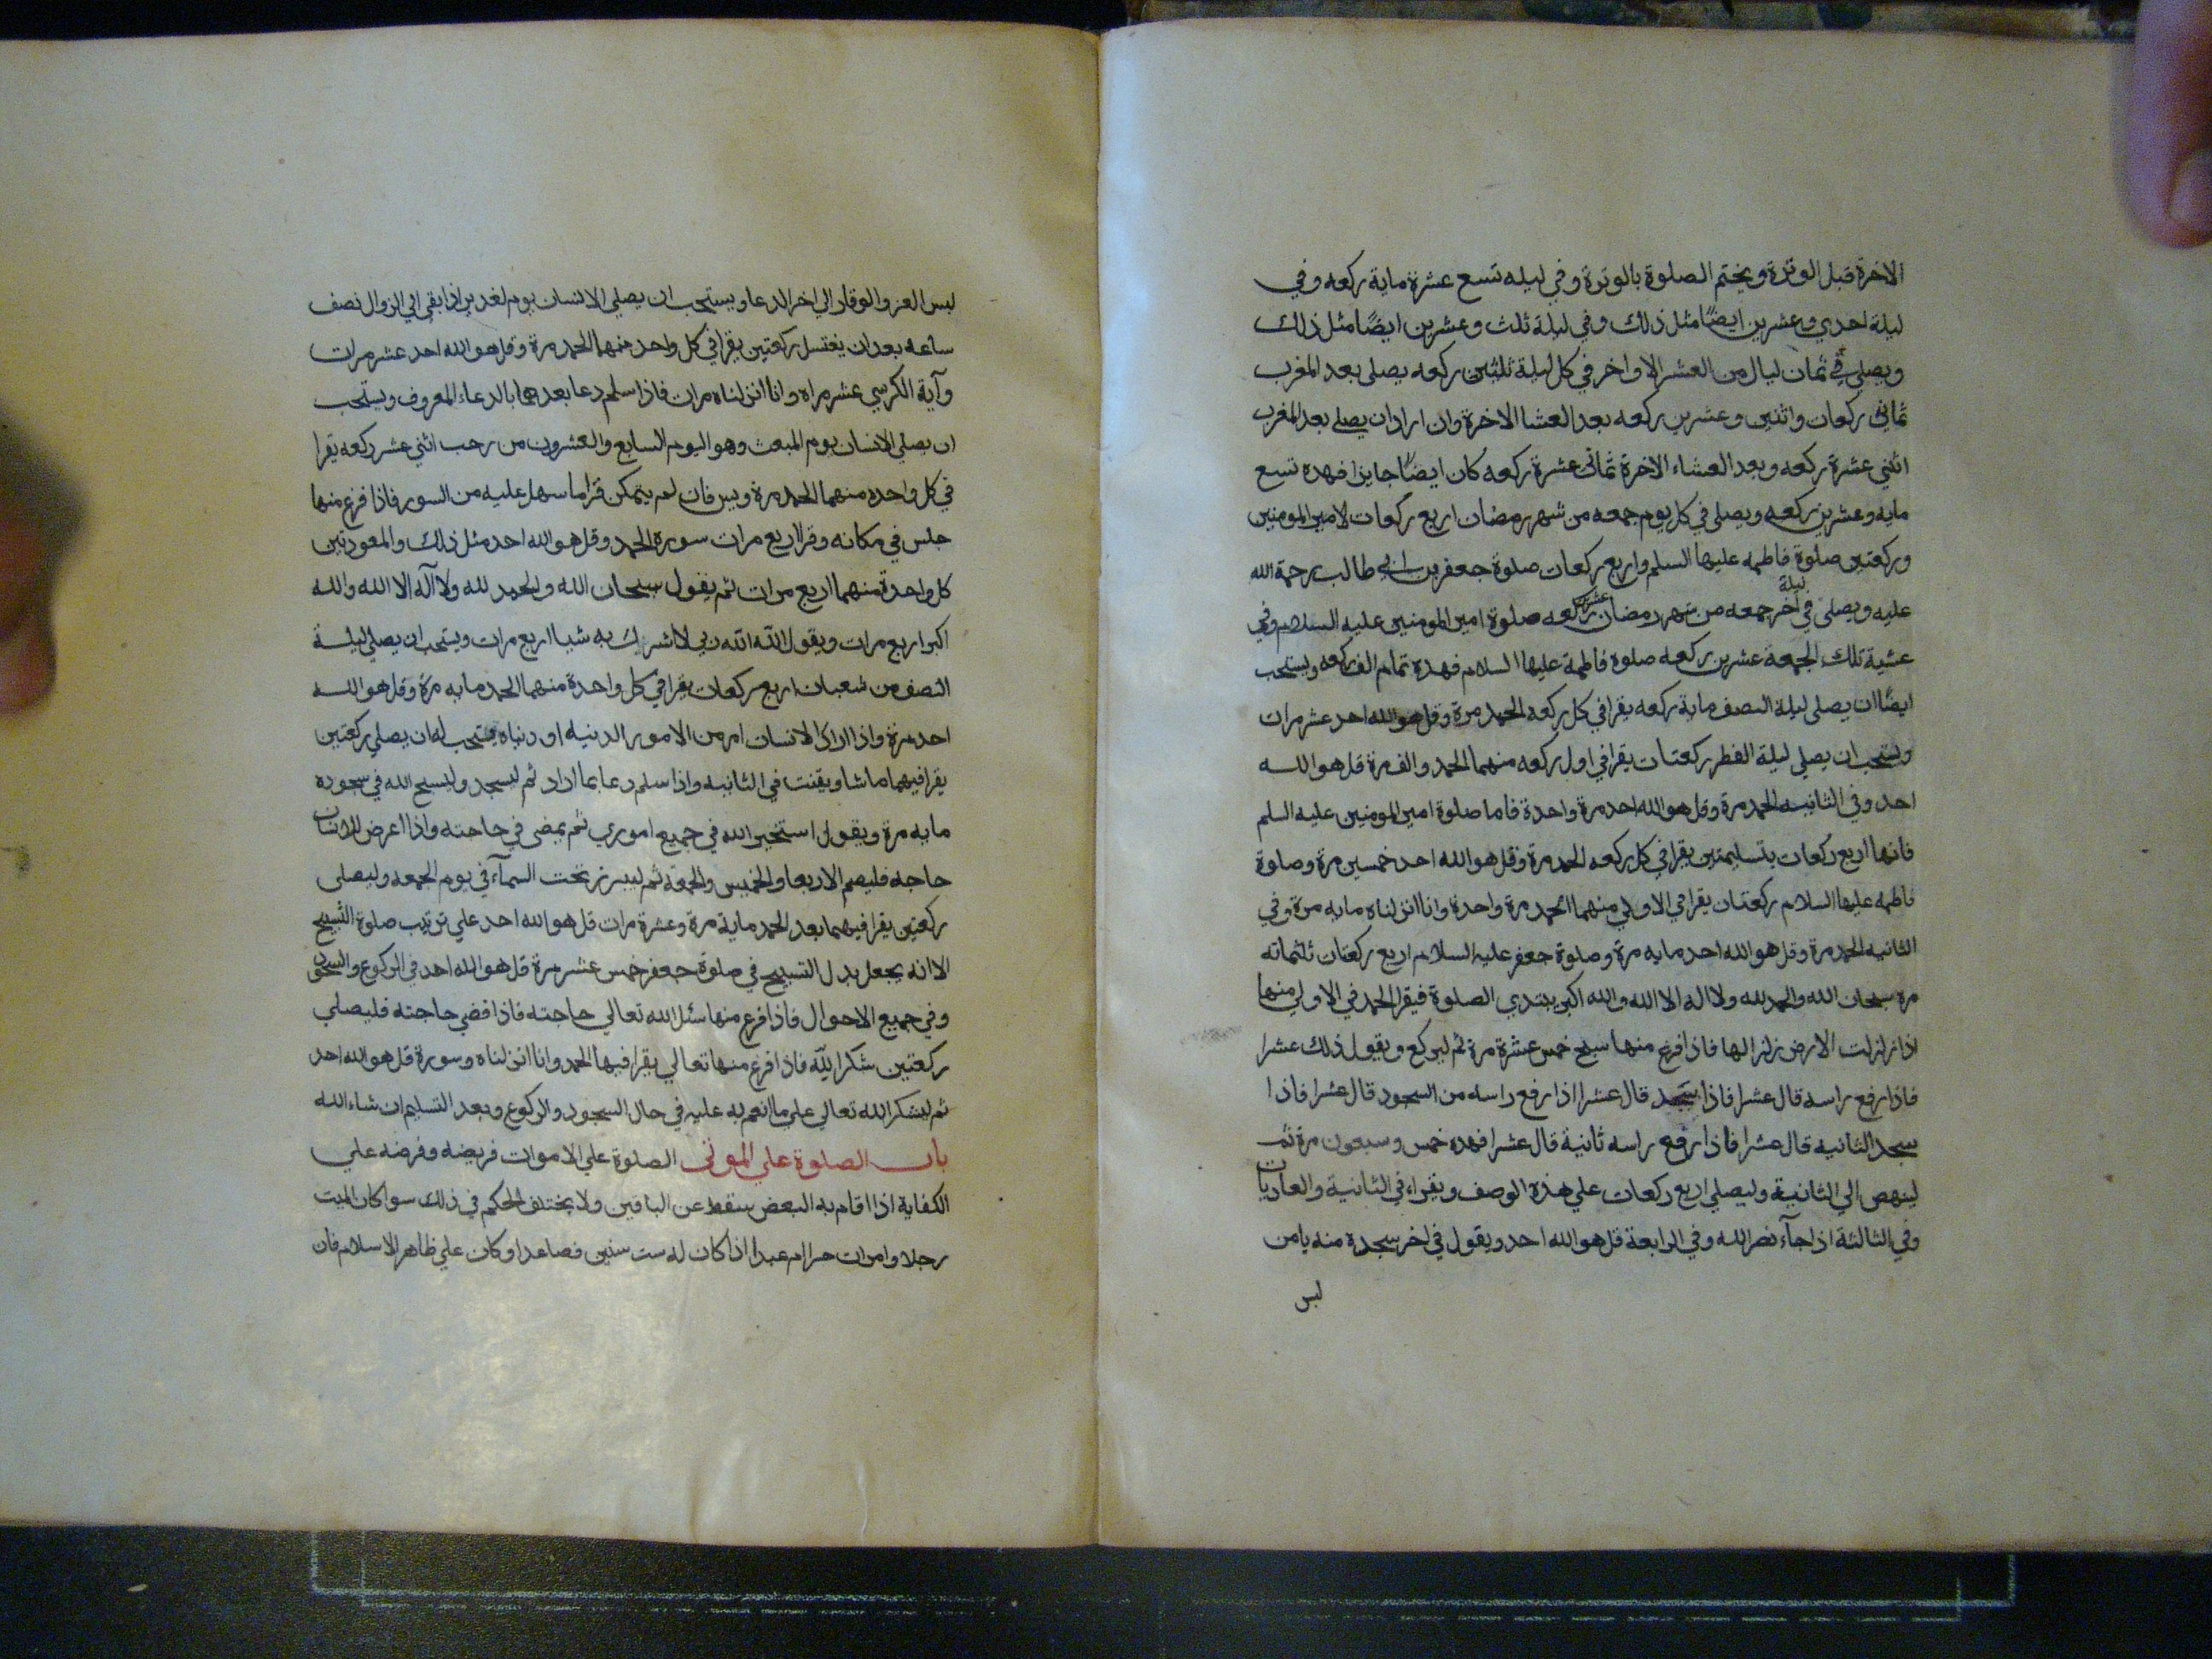 الاخرة قبل الوترة ويختم الصلوة بالوترة وفي ليله تسع عشرة ماية ركعه وفي
ليلة احدي وعشرين ايضًا مثل ذلك وفي ليلة ثلث وعشرين ايضًا مثل ذلك
ويصلي في ثمان ليال من العشر الاواخر في كل ليلة ثلثين ركعه يصلي بعد المغرب
ثماني ركعات واثنين وعشرين ركعه بعد العشا الاخرة وان اراد ان يصلي بعد المغرب
اثني عشرة ركعه وبعد العشاء الاخرة ثماني عشرة ركعه كان ايضًا جايزا فهده تسع
مايه وعشرين ركعه ويصلي في كل يوم جمعه من شهر رمضان اربع ركعات لامير المومنين
وركعتين صلوة فاطمه عليها السلم واربع ركعات صلوة جعفر بن ابي طالب رحمة الله
عليه ويصلي في ليلة آخر جمعه من شهر رمضان عشرين ركعه صلوة امير المومنين عليه السلام وفي
عشية تلك الجمعة عشرين ركعه صلوة فاطمة عليها السلام فهدة تمام الف ركعه ويستحب
ايضًا ان يصلي ليلة النصف ماية ركعه يقرا في كل ركعه الحمد مرة وقل هو الله احد عشر مرات
ويستحب ان يصلي ليلة الفطر ركعتان يقرا في اول ركعه منهما الحمد والف مرة قل هو الله
احد وفي الثانيه الحمد مرة وقل هو الله احد مرة واحدة فاما صلوة امير المومنين عليه السلم
فانها اربع ركعات بتسليمتين يقرا في كل ركعه الحمد مرة وقل هو الله احد خمسين مرة وصلوة
فاطمه عليها السلام ركعتان يقرا في الاولي منهما الحمد مرة واحدة وانا انزلناه مايه مرة وفي
الثانيه الحمد مرة وقل هو الله احد مايه مرة وصلوة جعفر عليه السلام اربع ركعتان ثلثمائه
مرة سبحان الله والحمد لله ولا اله الا الله والله اكبر يبتدي الصلوة فيقرا الحمد في الاولي منها
اذا زلزلت الارض زلزالها فاذا فرغ منها سبح خمس عشرة مرة ثم ليركع ويقول ذلك عشرا
فاذا رفع راسه قال عشرا فاذا سجد قال عشرا اذا رفع راسه من السجود قال عشرا فاذا
سجد الثانيه قال عشرا فاذا رفع راسه ثانية قال عشرا فهده خمس وسبعون مرة ثم
لينهض الي الثانية وليصلي اربع ركعات علي هذة الوصف ويقراء في الثانية والعاديات
وفي الثالثة اذا جآء نصر الله وفي الرابعة قل هو الله احد ويقول في اخر سجدة منه يا من
لبس
لبس العز والوقار الي اخر الدعا ويستحب ان يصلي الانسان يوم لغدير اذا بقي الي الزوال نصف
ساعه بعد ان يغتسل ركعتين يقرا في كل واحد منهما الحمد مرة وقل هو الله احد عشر مرات
وآية الكرسي عشر مراه وانا انزلناه مرات فاذا سلم دعا بعدهما بالدعاء المعروف ويستحب
ان يصلي الانسان يوم المبعث وهو اليوم السابع والعشرون من رجب اثني عشر ركعه يقرا
في كل واحده منهما الحمد مرة ويس فان لم يتمكن قرا ما سهل عليه من السور فاذا فرغ منها
جلس في مكانه وقرا اربع مرات سورة الحمد وقل هو الله احد مثل ذلك والمعودتين
كل واحدة منهما اربع مرات ثم يقول سبحان الله والحمد لله ولا آله الا الله والله
اكبر اربع مرات ويقول الله الله ربي لا اشرك به شيا اربع مرات ويستحب ان يصلي ليلة
النصف من شعبان اربع ركعات يقرا في كل واحدة منهما الحمد مايه مرة وقل هو الله
احد مرة واذا اراد الانسان امر من الامور الدينيه او دنياه يستحب له ان يصلي ركعتين
يقرا فيهما ما شا ويقنت في الثانيه واذا سلم دعا بما اراد ثم ليسجد وليسبح الله في سجوده
مايه مرة ويقول استخير الله في جميع اموري ثم يمضي في حاجته واذا اعرض للانسان
حاجه فليصم الاربعا والخميس والجمعة ثم ليبرز تحت السمآء في يوم الجمعه وليصلي
ركعتين يقرا فيهما بعد الحمد ماية مرة وعشرة مرات قل هو الله احد علي ترتيب صلوة التسبيح
الا انه يجعل بدل التسبيح في صلوة جعفر خمس عشر مرة قل هو الله احد في الركوع والسجود
وفي جميع الاحوال فاذا فرغ منها سئل الله تعالي حاجته فاذا قضي حاجته فليصلي
ركعتين شكرا لله فاذا فرغ منها تعالي يقرا فيها الحمد وانا انزلناه وسورة قل هو الله احد
ثم ليشكر الله تعالي علي ما انعم به عليه في حال السجود والركوع وبعد التسليم ان شاء الله
باب الصلوة علي الموتي الصلوة علي الاموات فريضه وفرضه علي
الكفاية اذا اقام به البعض سقط عن الباقين ولا يختلف الحكم في ذلك سوا كان الميت
رجلا وامرات حرا ام عبدا اذا كان له ست سنين فصاعدا وكان علي ظاهر الاسلام فان